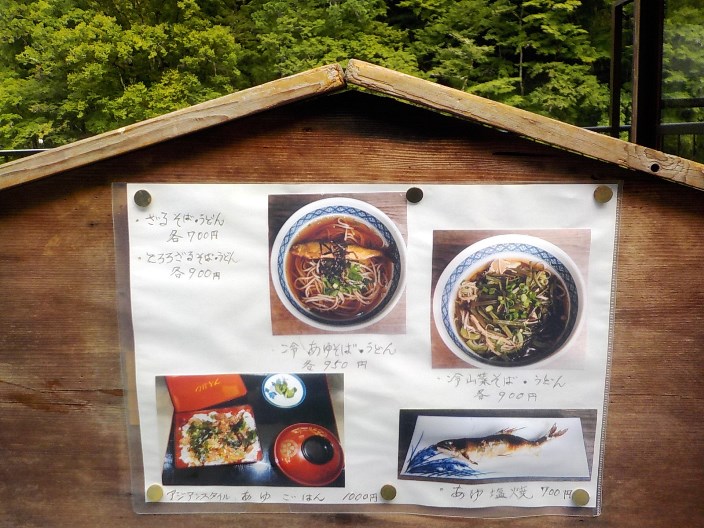 ・ざるそば・うどん
各700円
・とろろざるそば・うどん
各900円
・冷あゆそば・うどん
各950円
・冷山菜そば・うどん
各900円
アジアンスタイル あゆ ごはん 1000円
・あゆ塩焼 700円